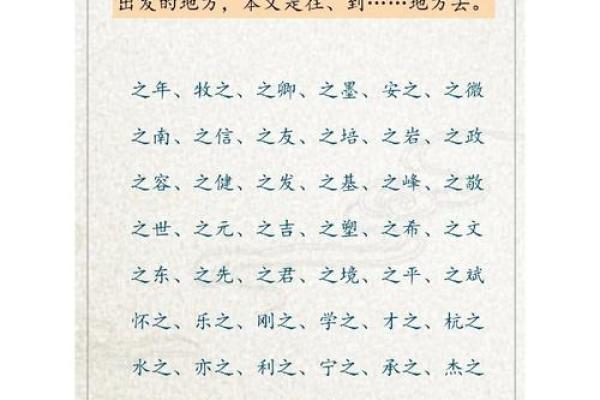 出发的地方，本义是往、到……地方去。
之年、牧之、之卿、之墨、安之、之微
之南、之信、之友、之培、之岩、之政
之容、之健、之发、之基、之峰、之敬
之世、之元、之吉、之塑、之希、之文
之东、之先、之君、之境、之平、之斌
怀之、乐之、刚之、学之、才之、杭之
水之、亦之、利之、宁之、承之、杰之